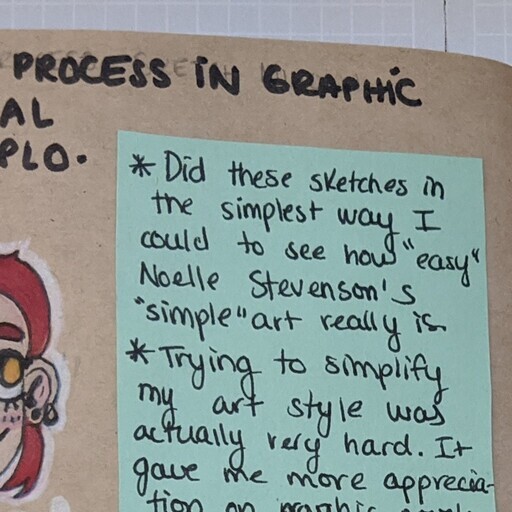 PROCESS IN GRAPHIC
AL
PLO.
* Did these sketches in
the simplest way I
could to see how "easy"
Noelle Stevenson's
"simple" art really is.
* Trying to simplify
my art style was
actually very hard. It
gave me more apprecia-
tion on graphic